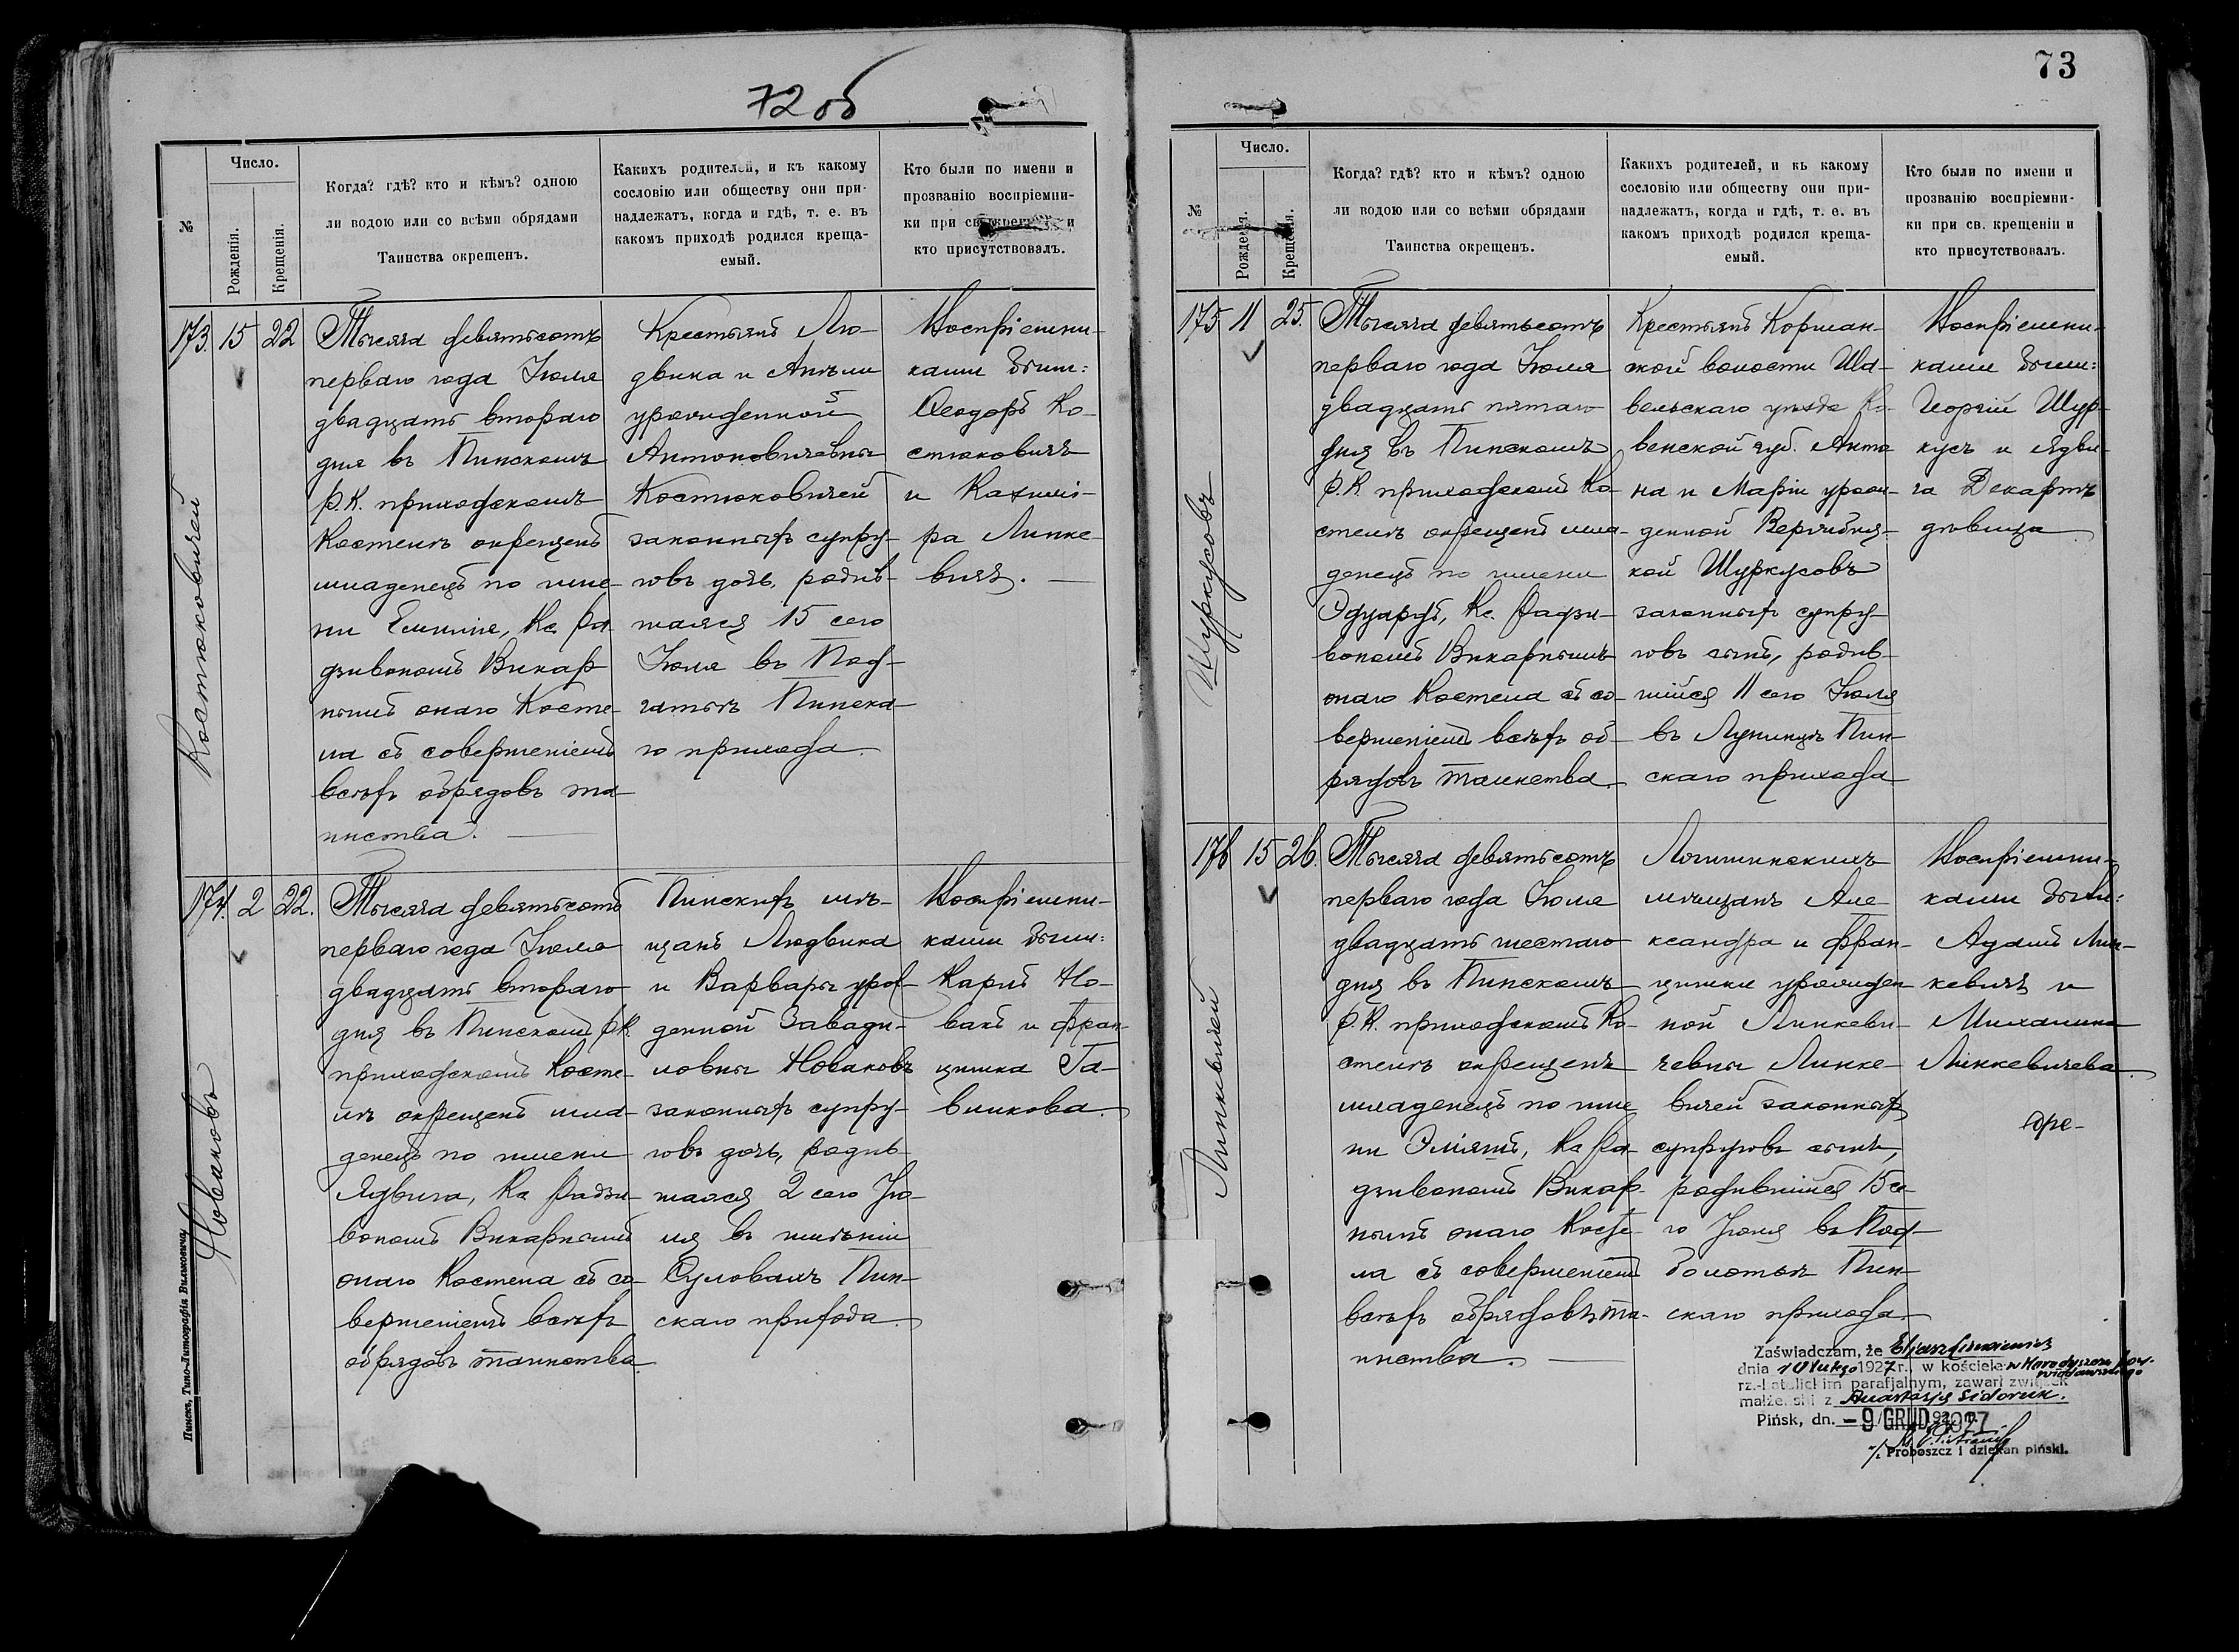 72 об
№
Число.
Рожденія.
Крещенія.
Когда? гдѣ? кто и кѣмъ? одною
ли водою или со всѣми обрядами
Таинства окрещенъ.
Какихъ родителей, и къ какому
сословію или обществу они при-
надлежатъ, когда и гдѣ, т. е. въ
какомъ приходѣ родился креща-
емый.
Кто были по имени и
прозванію воспріемни-
ки при св. крещеніи и
кто присутствовалъ.
Костюковичей
173. 15 22
Тысяча девятьсотъ
перваго года Іюля
двадцать втораго
дня въ Пинскомъ
Р.К. приходскомъ
Костелѣ окрещенъ
младенецъ по име-
ни Емилія, Кс. Ра-
дзивономъ Викар-
нымъ онаго Косте-
ла съ совершеніемъ
всѣхъ обрядовъ та
инства.
Крестьянъ Лю-
двика и Анели
урожденной
Антоновичевны
Костюковичей
законныхъ супру-
говъ дочь, родив-
шаяся 15 сего
Іюля въ Под-
гатьѣ Пинска-
го прихода.
Воспріемни-
ками были:
Ѳеодоръ Ко-
стюковичъ
и Казимі-
ра Линке-
вичъ.
Новаковъ
174. 2 22.
Тысяча девятьсотъ
перваго года Іюля
двадцать втораго
дня въ Пинскомъ Р.К.
приходскомъ Косте-
лѣ окрещенъ мла-
денецъ по имени
Ядвига, Кс. Радзи-
вономъ Викарнымъ
онаго Костела съ со-
вершеніемъ всѣхъ
обрядовъ таинства.
Пинскихъ мѣ-
щанъ Людвика
и Варвары урож-
денной Завади-
ловны Новаковъ
законныхъ супру-
говъ дочь, родив-
шаяся 2 сего Ію-
ля въ имѣніи
Сулованъ Пин-
скаго прихода.
Воспріемни-
ками были:
Карлъ Но-
вакъ и Фран-
цишка Га-
вликова.
Пинскъ, Типо-Литографія Вильковича
73
№
Число.
Рожденія.
Крещенія.
Когда? гдѣ? кто и кѣмъ? одною
ли водою или со всѣми обрядами
Таинства окрещенъ.
Какихъ родителей, и къ какому
сословію или обществу они при-
надлежатъ, когда и гдѣ, т. е. въ
какомъ приходѣ родился креща-
емый.
Кто были по имени и
прозванію воспріемни-
ки при св. крещеніи и
кто присутствовалъ.
Шуркусовъ
175 11 25.
Тысяча девятьсотъ
перваго года Іюля
двадцать пятаго
дня въ Пинскомъ
Р.К. приходскомъ Ко-
стелѣ окрещенъ мла-
денецъ по имени
Эдуардъ, Кс. Радзи-
вономъ Викарнымъ
онаго Костела съ со-
вершеніемъ всѣхъ об-
рядовъ таинства.
Крестьянъ Корман-
ской волости Ша-
вельскаго уѣзда Ко-
венской губ. Анто-
на и Маріи урож-
денной
Шуркусовъ
законныхъ супру-
говъ сынъ, родив-
шійся 11 сего Іюля
въ Лунинцѣ Пин-
скаго прихода
Воспріемни-
ками были:
Георгій Шур-
кусъ и Ядви-
га
дѣвица
Линкевичей
176 15 26.
Тысяча девятьсотъ
перваго года Іюля
двадцать шестаго
дня въ Пинскомъ
Р.К. приходскомъ Ко-
стелѣ окрещенъ
младенецъ по име
ни Эліяшъ, Кс. Ра-
дзивономъ Викар-
нымъ онаго Косте-
ла съ совершеніемъ
всѣхъ обрядовъ та-
инства.
Логишинскихъ
мѣщанъ Але-
ксандра и Фран-
цишки урожден
ной Линкеви-
чевны Линке-
вичей законныхъ
супруговъ сынъ,
родившійся 15 се-
го Іюля въ Под-
болотьѣ Пин-
скаго прихода.
Воспріемни-
ками были:
Адамъ Лин-
кевичъ и
Михалина
Линкевичева.
Zaświadczam, że Eljasz Linkiewicz
dnia 10 lutego 1927 r. w kościele w Horodyszczu pow.
rz.-katolickim parafjalnym, zawarł związek
małżeński z Anastazją Sidoruk.
Pińsk, dn. - 9/GRUD. 1927
Proboszcz i dziekan piński.